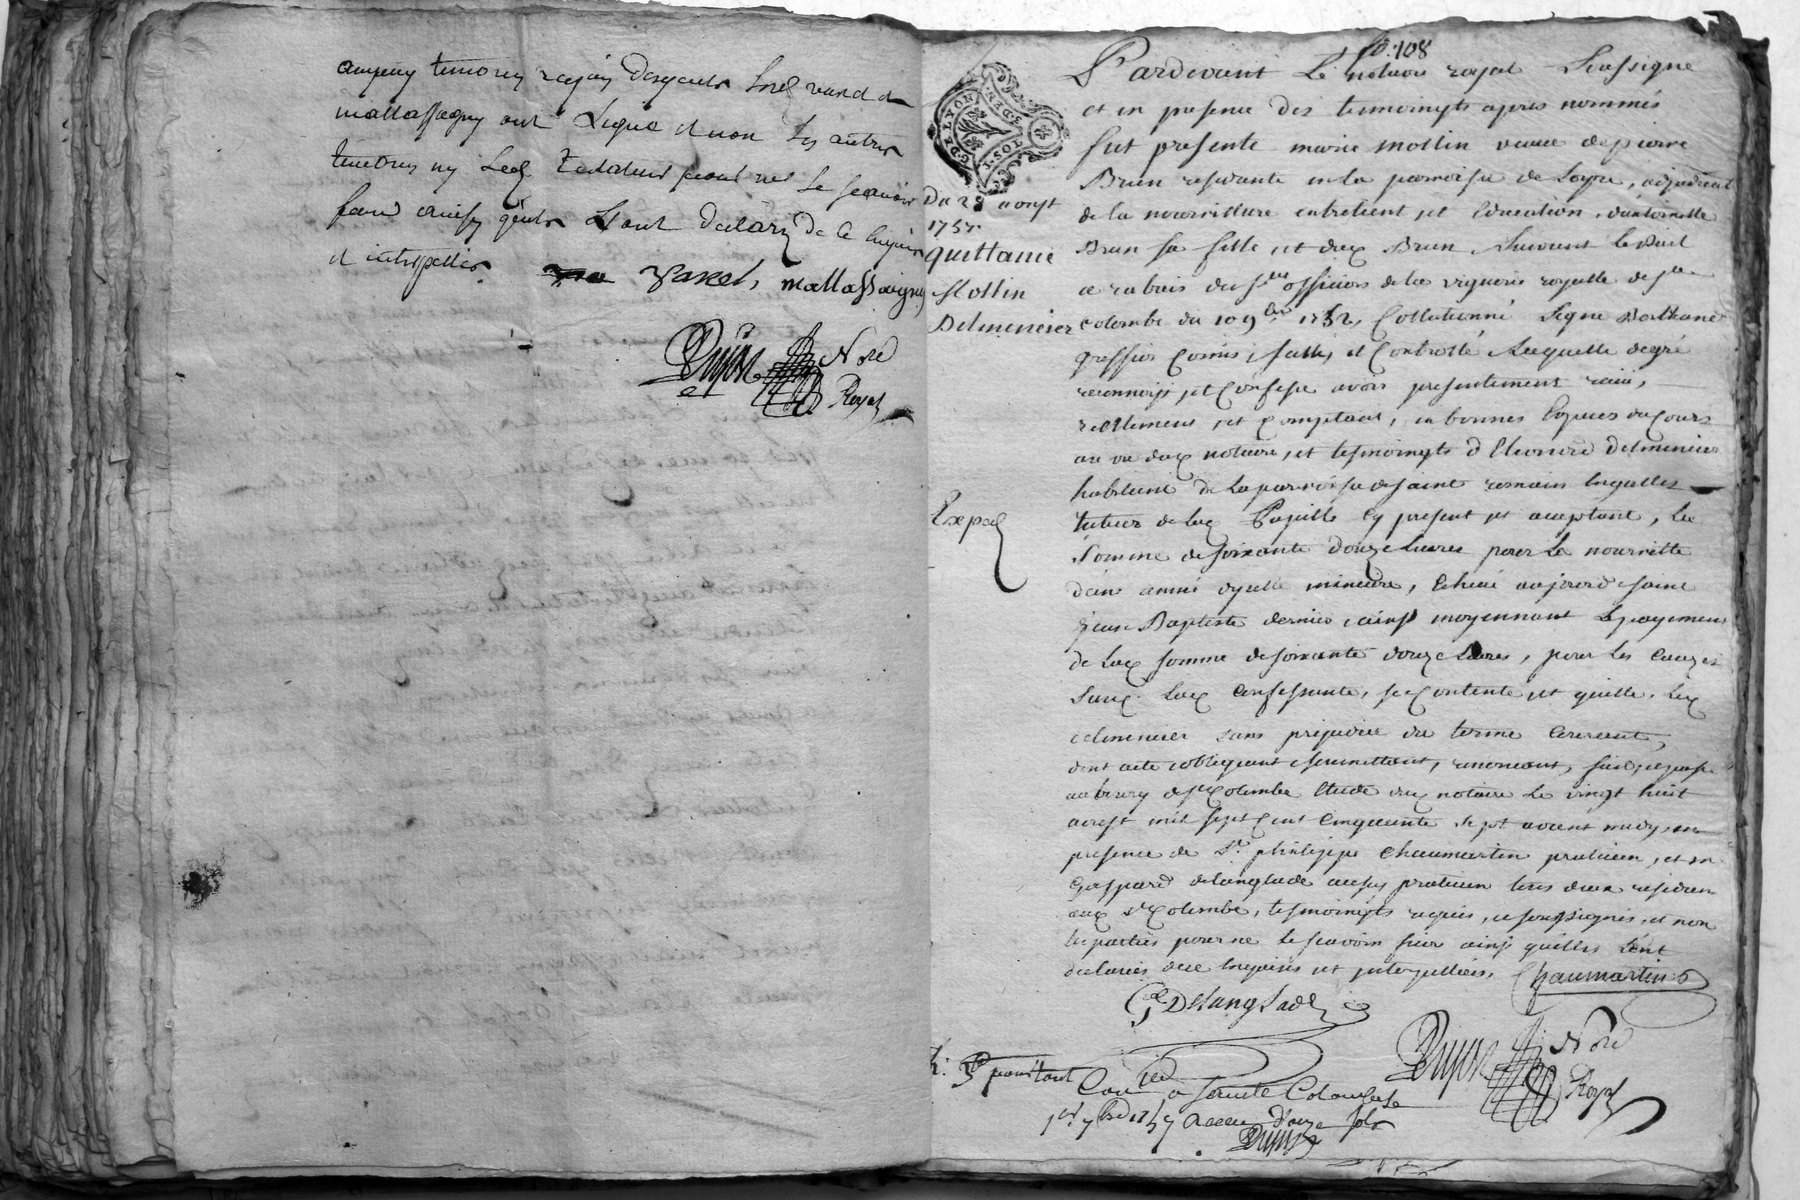 temoins requis desquels led varel et
mallassagny ont signé et non les autres
temoins ny led testateur pour ne le scavoir
faire ainsy qu'ils l'ont declaré de ce enquis
et interpellés. varel, mallassaigny
Dujon Nore
Royal
fo. 108
Pardevant le notaire royal soussigné
et en presence des temoingts apres nommés
fut presente marie mollin veuve de pierre
Brun residante en la paroisse de Loyre, adjudicat
de la nourritture entretient, et education, d'antoinette
Brun sa fille, et dud Brun, suivant le bail
a rabais des srs officiers de la viguerie royalle de ste
colombe du 10 9bre 1752, Collationné signé Berthand
greffier comis, scellé, et controllé, laquelle de gré
reconnoist, et confesse avoir presentement reçu,
reellement, et comptant, en bonnes especes du cours
au vu dud notaire, et tesmoingts d'Eleonord Delmenicier
habitant de la parroisse de saint romain en galles
tuteur de lad Pupille cy present et aceptant, la
somme de soixante douze livres pour la nourritte
d'une année d'ycelle mineure, echeue au jour de saint
jean Baptiste dernier, ainsy moyennant le payement
de lad somme de soixante douze livres, pour les causes
susd. lad confessante, se contente, et quitte, led
delmenicier sans prejudice du terme courant,
dont acte obligeant, soumettant, renonceant, fait, et passé
au bourg de ste Colombe Etude dud notaire le vingt huit
aoust mil sept cent cinquante sept avant midy, en
presence de sr. philippe Chaumartin praticien, et sr
Gaspard delanglade aussy praticien tous deux residens
aud ste Colombe, tesmoingts requis, et soussignés, et non
les parties pour ne le scavoir faire ainsy qu'elles l'ont
declarées de ce enquises et interpellées. Chaumartin
G Delanglade
Dujon Nore
Royal
Du 28 aoust
1757
quittance
Mollin
Delmenicier
Exped
DE LYON
GEN.
1. SOL
Conllé a sainte Colombe
1er 7bre 1757 Receu douze sols
Dujon